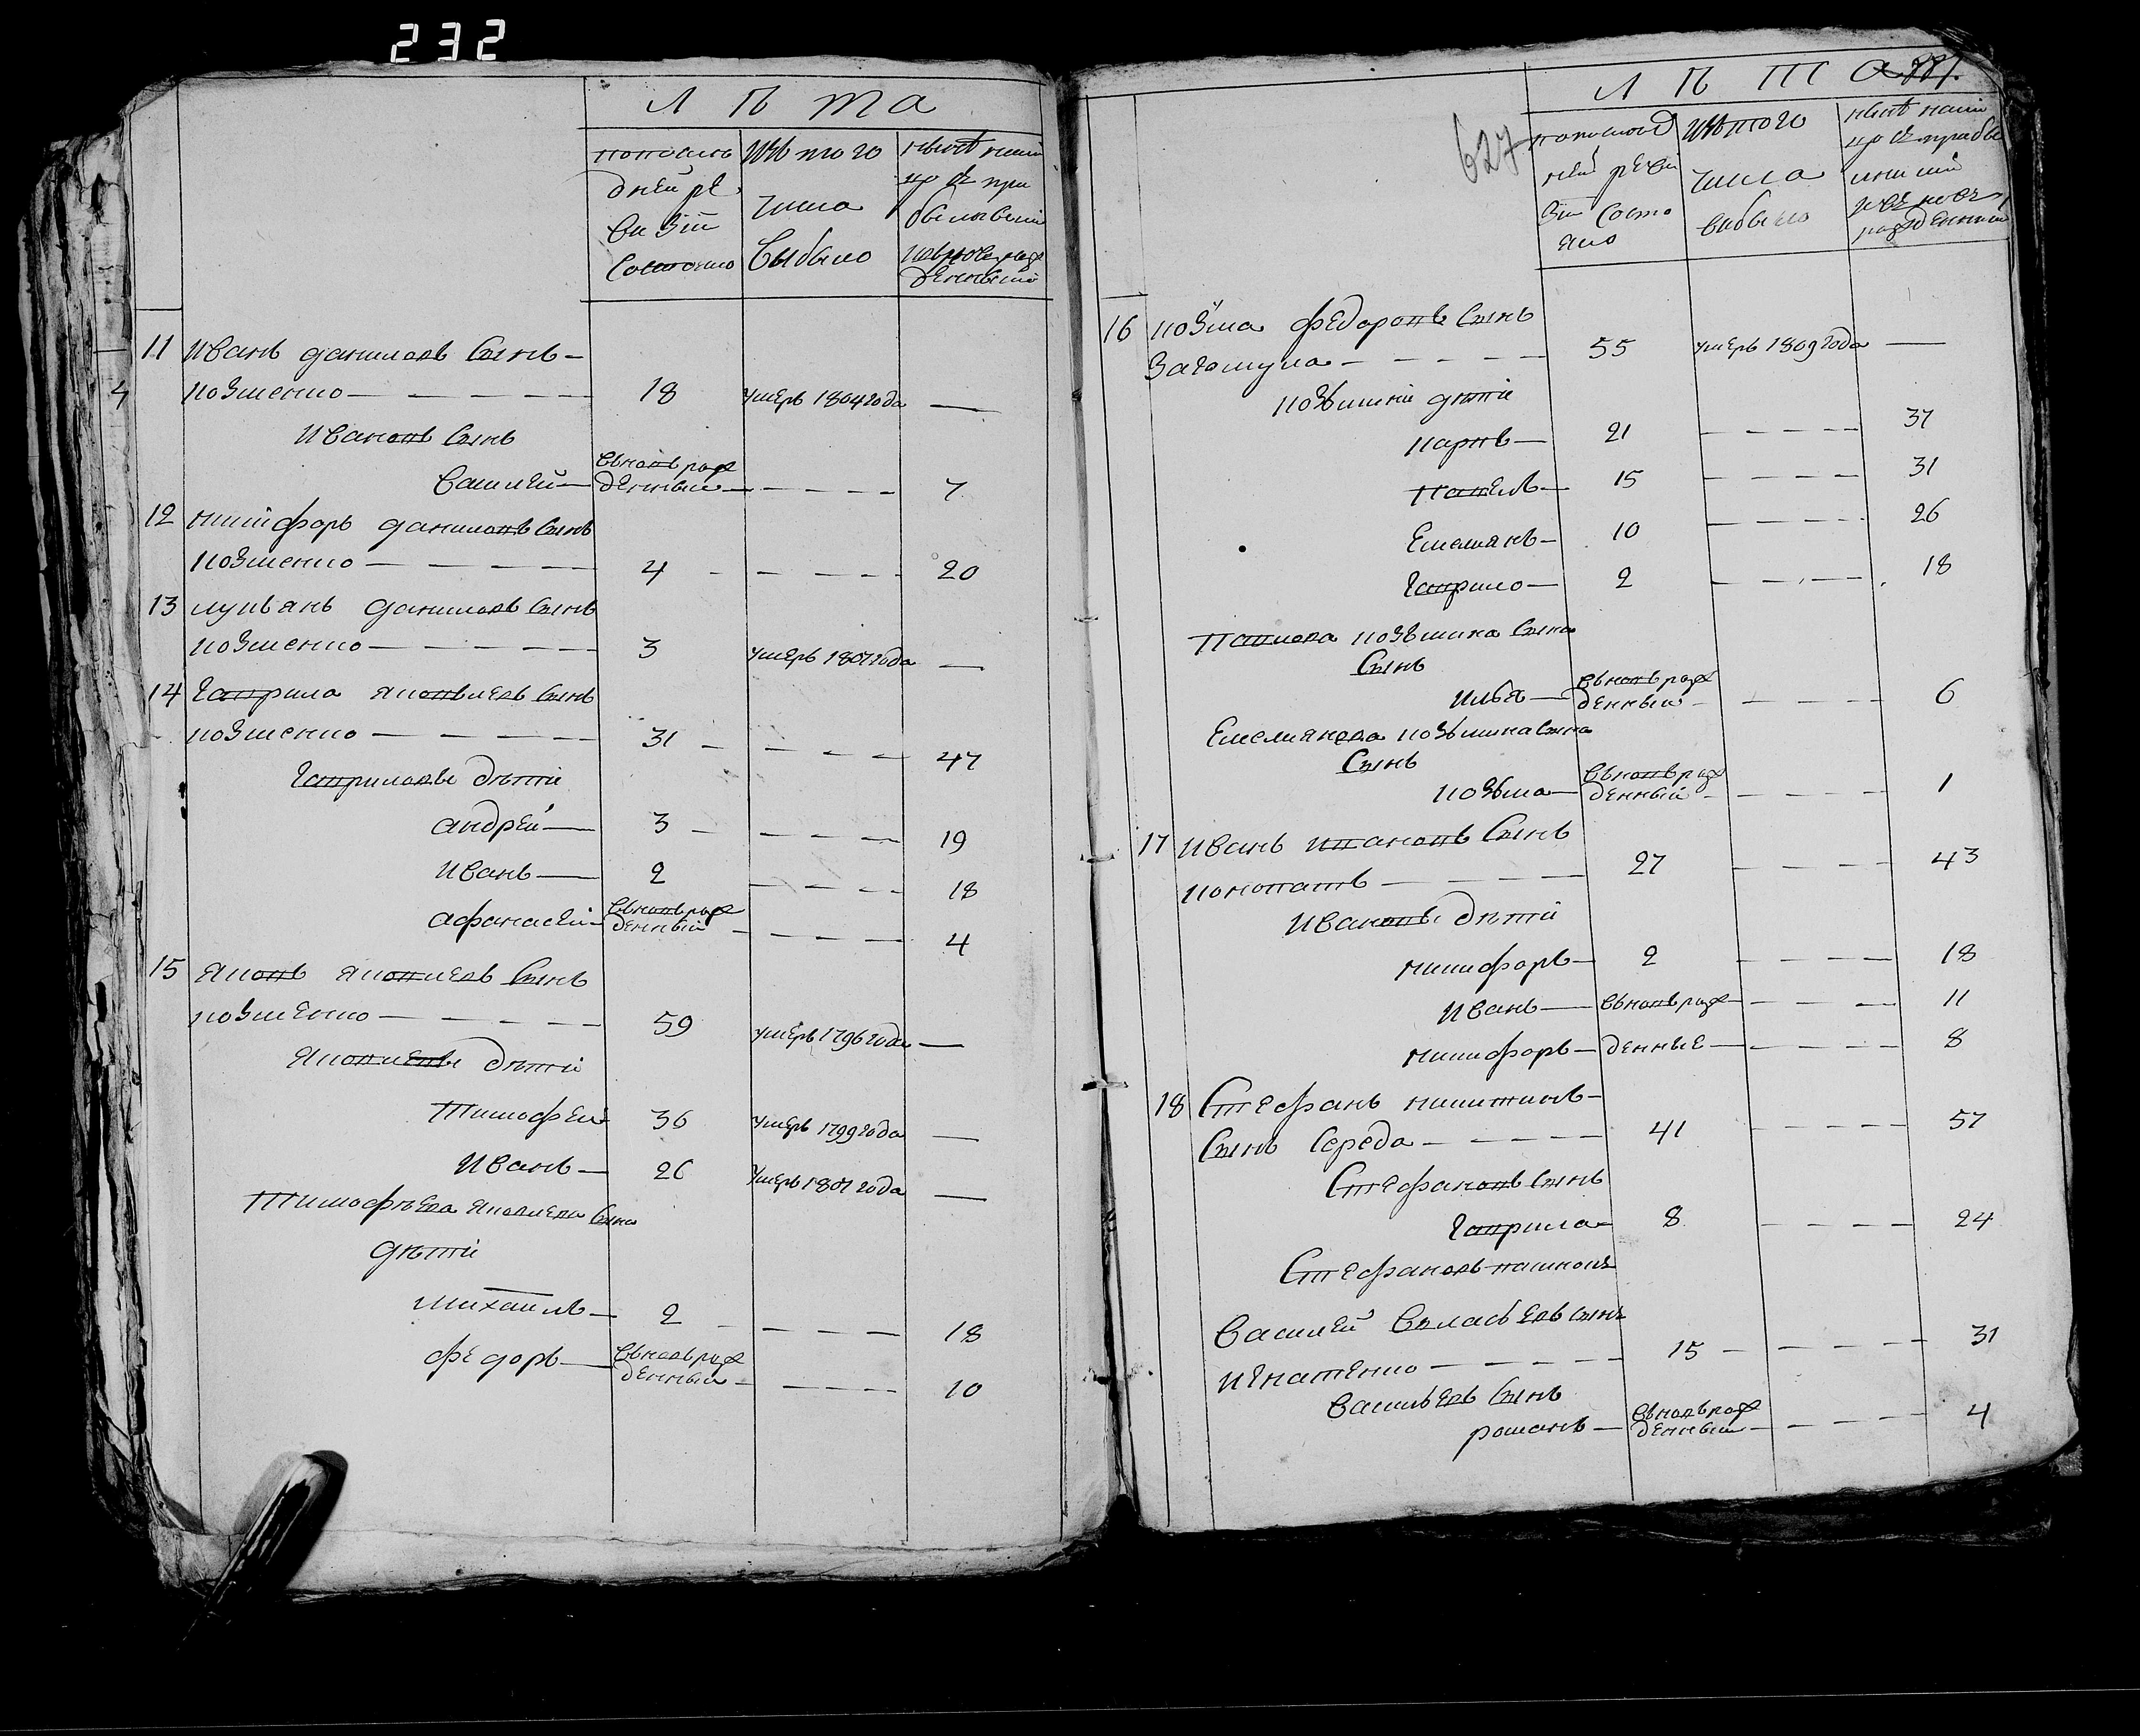 232
Лѣта
попослѣ
дней ре
визіи
состояло
изъ того
числа
выбыло
нынѣ налі
цо съ при
былыми
и вновь рож
денными
11 Иванъ Даниловъ сынъ
Козменко 18 умеръ 1804 года
Ивановъ сынъ
Василей вновь рож
денный 7
12 Никифоръ Даниловъ сынъ
Козменко 4 20
13 Лукьянъ Даниловъ сынъ
Козменко 3 умеръ 1801 года
14 Гаврила Яковлевъ сынъ
Козменко 31 47
Гавриловы дѣти
Андрей 3 19
Иванъ 2 18
Афанасей вновь рож
денный 4
15 Яковъ Яковлевъ сынъ
Козменко 59 умеръ 1796 года
Яковлевы дѣти
Тимофей 36 умеръ 1799 года
Иванъ 26 умеръ 1801 года
Тимофѣева Яковлева сына
дѣти
Михаилъ 2 18
Федоръ вновь рож
денный 10
Лѣта
627
попослѣд
ней реви
зіи состо
яло
изъ того
числа
выбыло
нынѣ налі
цо съ прибы
лыми
и вновь
рожденными
16 Козма Федоровъ сынъ
55 умеръ 1809 года
Козмины дѣти
Карпъ 21 37
Павелъ 15 31
Емелянъ 10 26
Гаврило 2 18
Павлова Козьмина сына
сынъ
Илья вновь рож
денный 6
Емелянова Козьмина сына
сынъ
Козьма вновь рож
денный 1
17 Иванъ Ивановъ сынъ
Коновать 27 43
Ивановы дѣти
Никифоръ 2 18
Иванъ вновь рож 11
Никифоръ денные 8
18 Стефанъ Никитинъ
сынъ Середа 41 57
Стефановъ сынъ
Гаврила 8 24
Стефановъ пасынокъ
Василей Власьевъ сынъ
Игнатенко 15 31
Васильевъ сынъ
Романъ вновь рож
денный 4